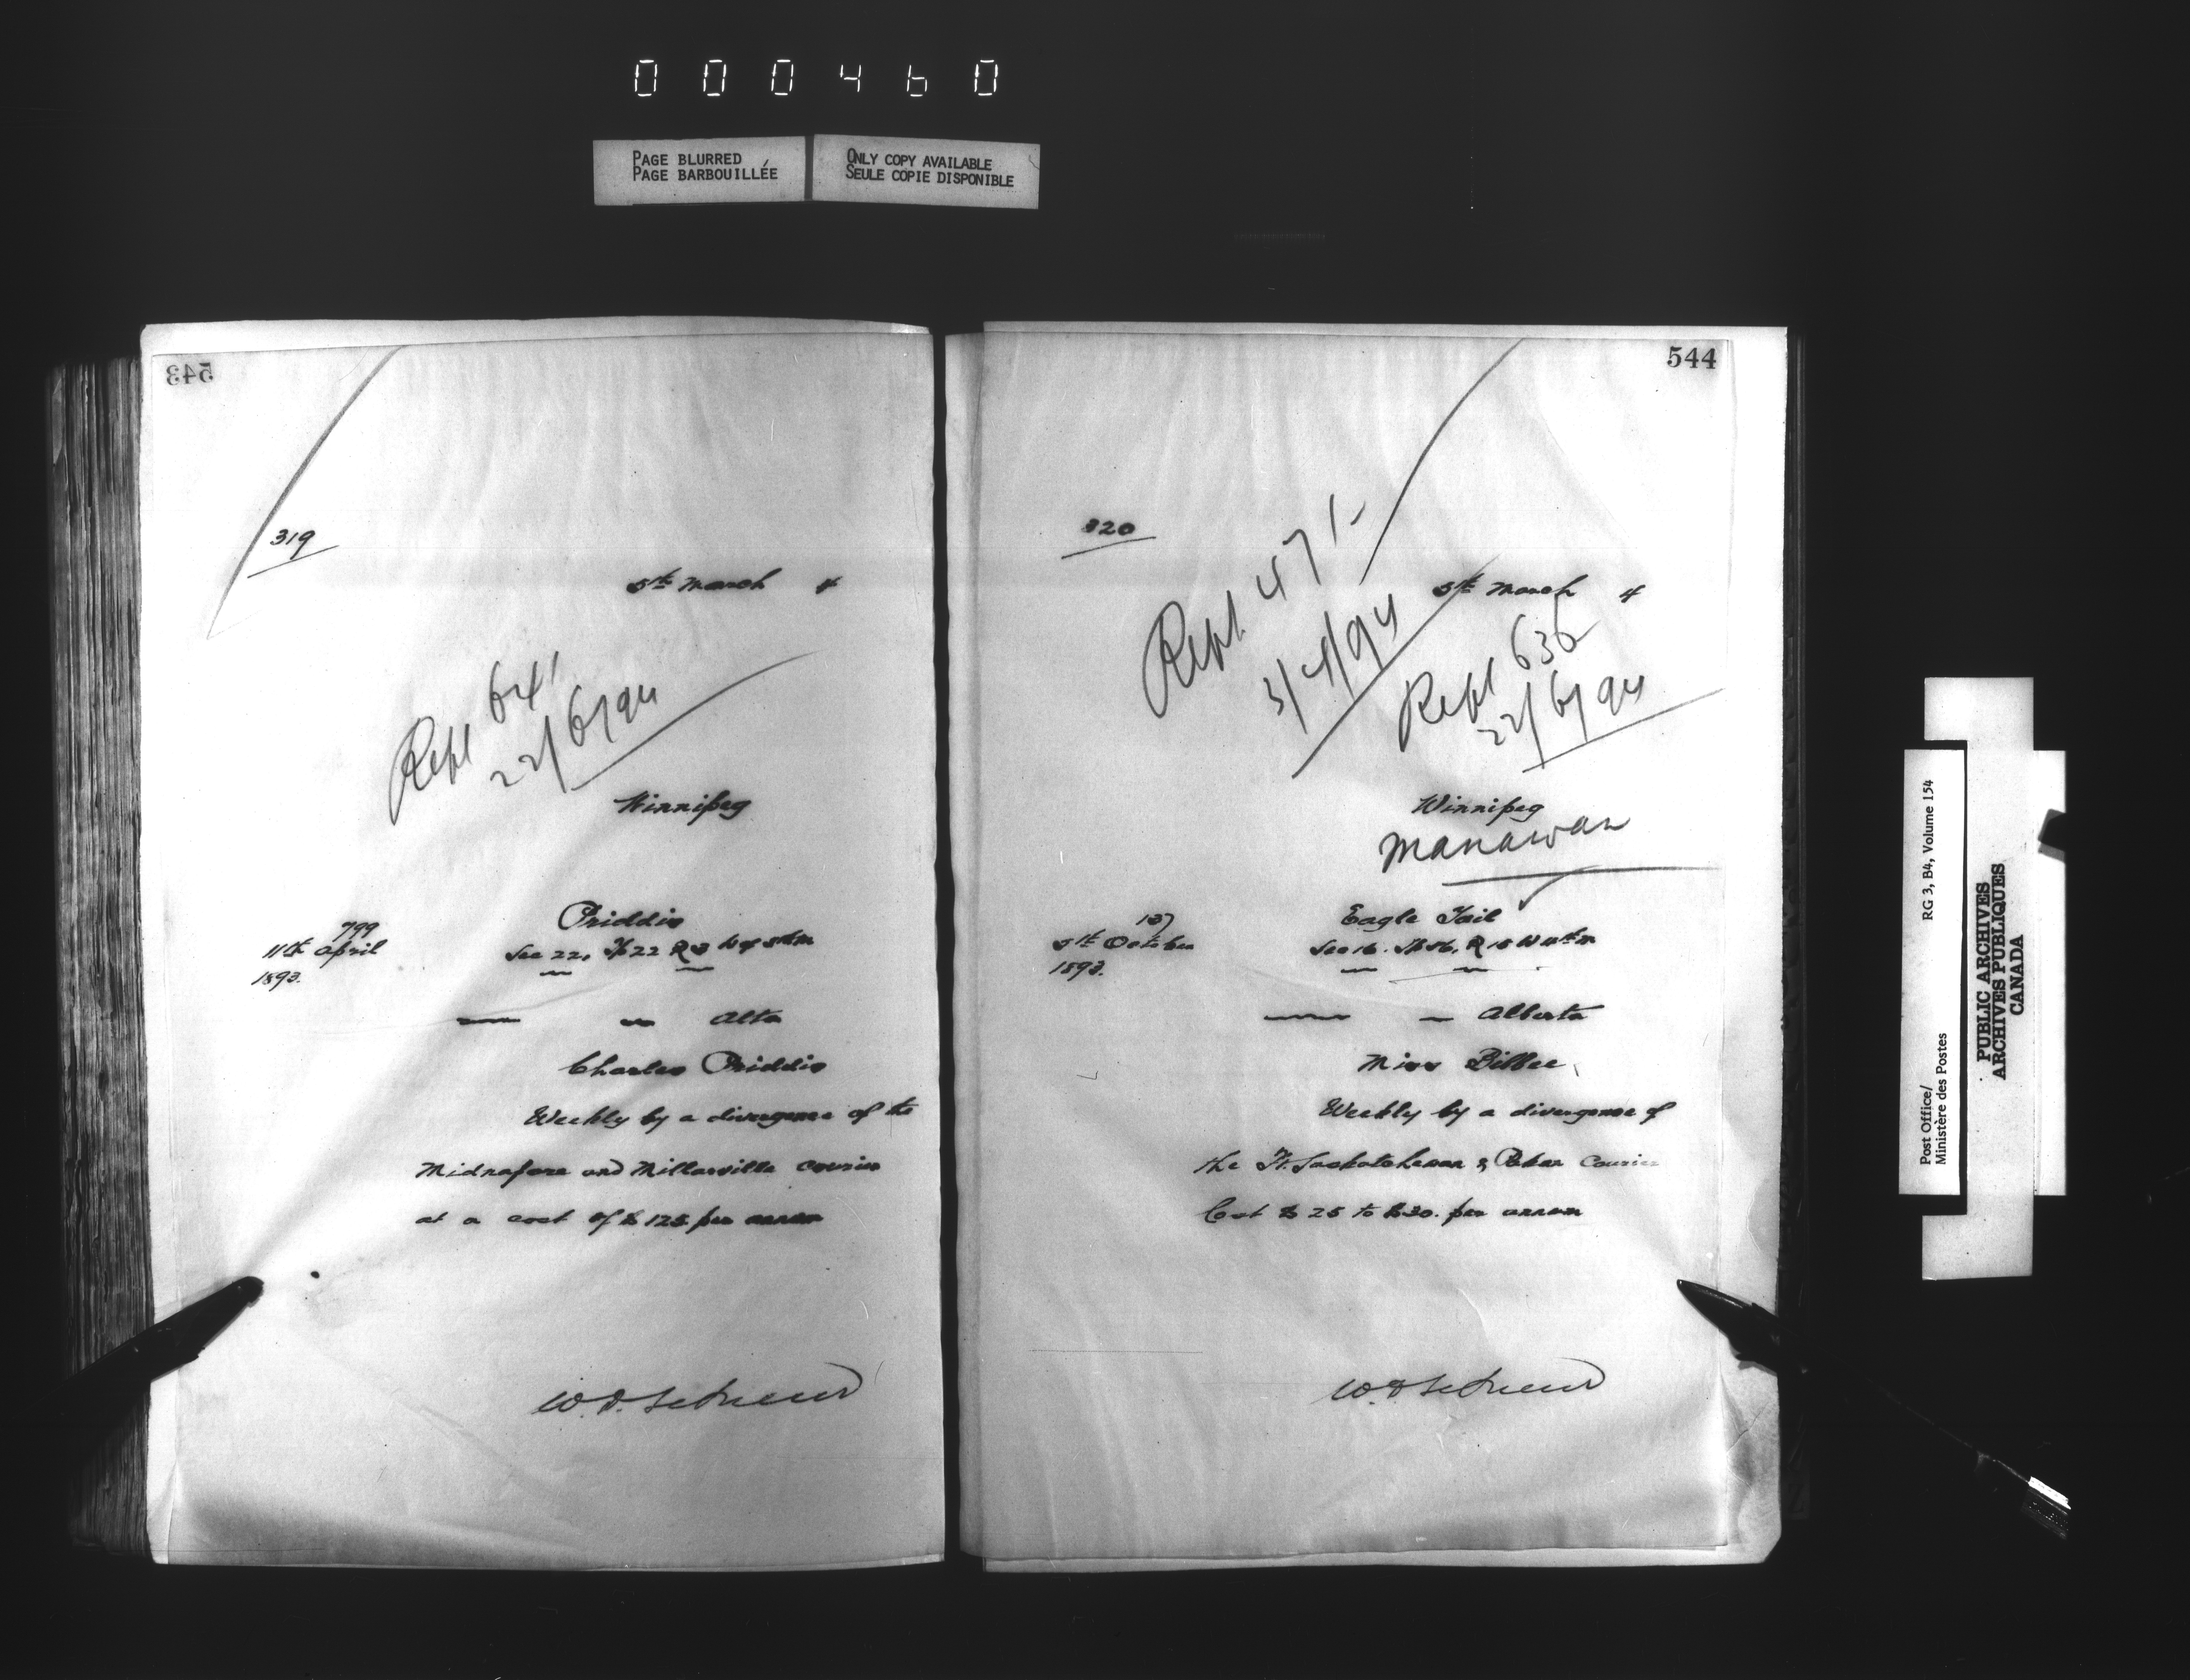 000460
PAGE BLURRED
PAGE BARBOUILLÉE
ONLY COPY AVAILABLE
SEULE COPIE DISPONIBLE
543
319
5th March 4
Repl 641
22/6/94
Winnipeg
799
11th April
1893.
Priddis
Sec 22, Tp 22 R 3 W of 5th M
Alta
Charles Priddis
Weekly by a divergence of the
Midnapore and Millarville courier
at a cost of $125. per annum
544
320
5th March 4
Repl 471-
3/4/94
Repl 636
22/6/94
Winnipeg
Manawan
137
5th October
1893.
Eagle Tail
Sec 16. Tp 56, R 15 W 4th M
Alberta
Miss
Weekly by a divergence of
the Ft. Saskatchewan & Courier
Cost $25 to $30. per annum
Post Office/
Ministère des Postes
RG 3, B4, Volume 154
PUBLIC ARCHIVES
ARCHIVES PUBLIQUES
CANADA